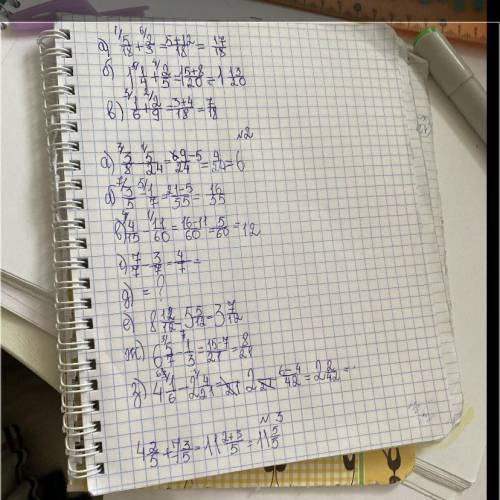 а) 5/18 + 2/3 = 5+12/18 = 17/18
б) 1 1/4 + 2/5 = 15+8/20 = 1 13/20
в) 1/6 + 2/9 = 3+4/18 = 7/18
№2
а) 3/8 - 5/24 = 9-5/24 = 4/24 = 6
б) 3/5 - 1/7 = 21-5/35 = 16/35
в) 4/15 - 11/60 = 16-11/60 = 5/60 = 12
г) 7/7 - 3/7 = 4/7 =
д) = ?
е) 8 12/12 - 5 5/12 = 3 7/12
ж) 6 5/7 - 1/3 = 15-7/21 = 8/21
з) 4 1/6 - 2 4/21 = 2 6-4/42 = 2 2/42 =
№3
4 2/5 + 7 3/5 = 11 2+3/5 = 11 5/5